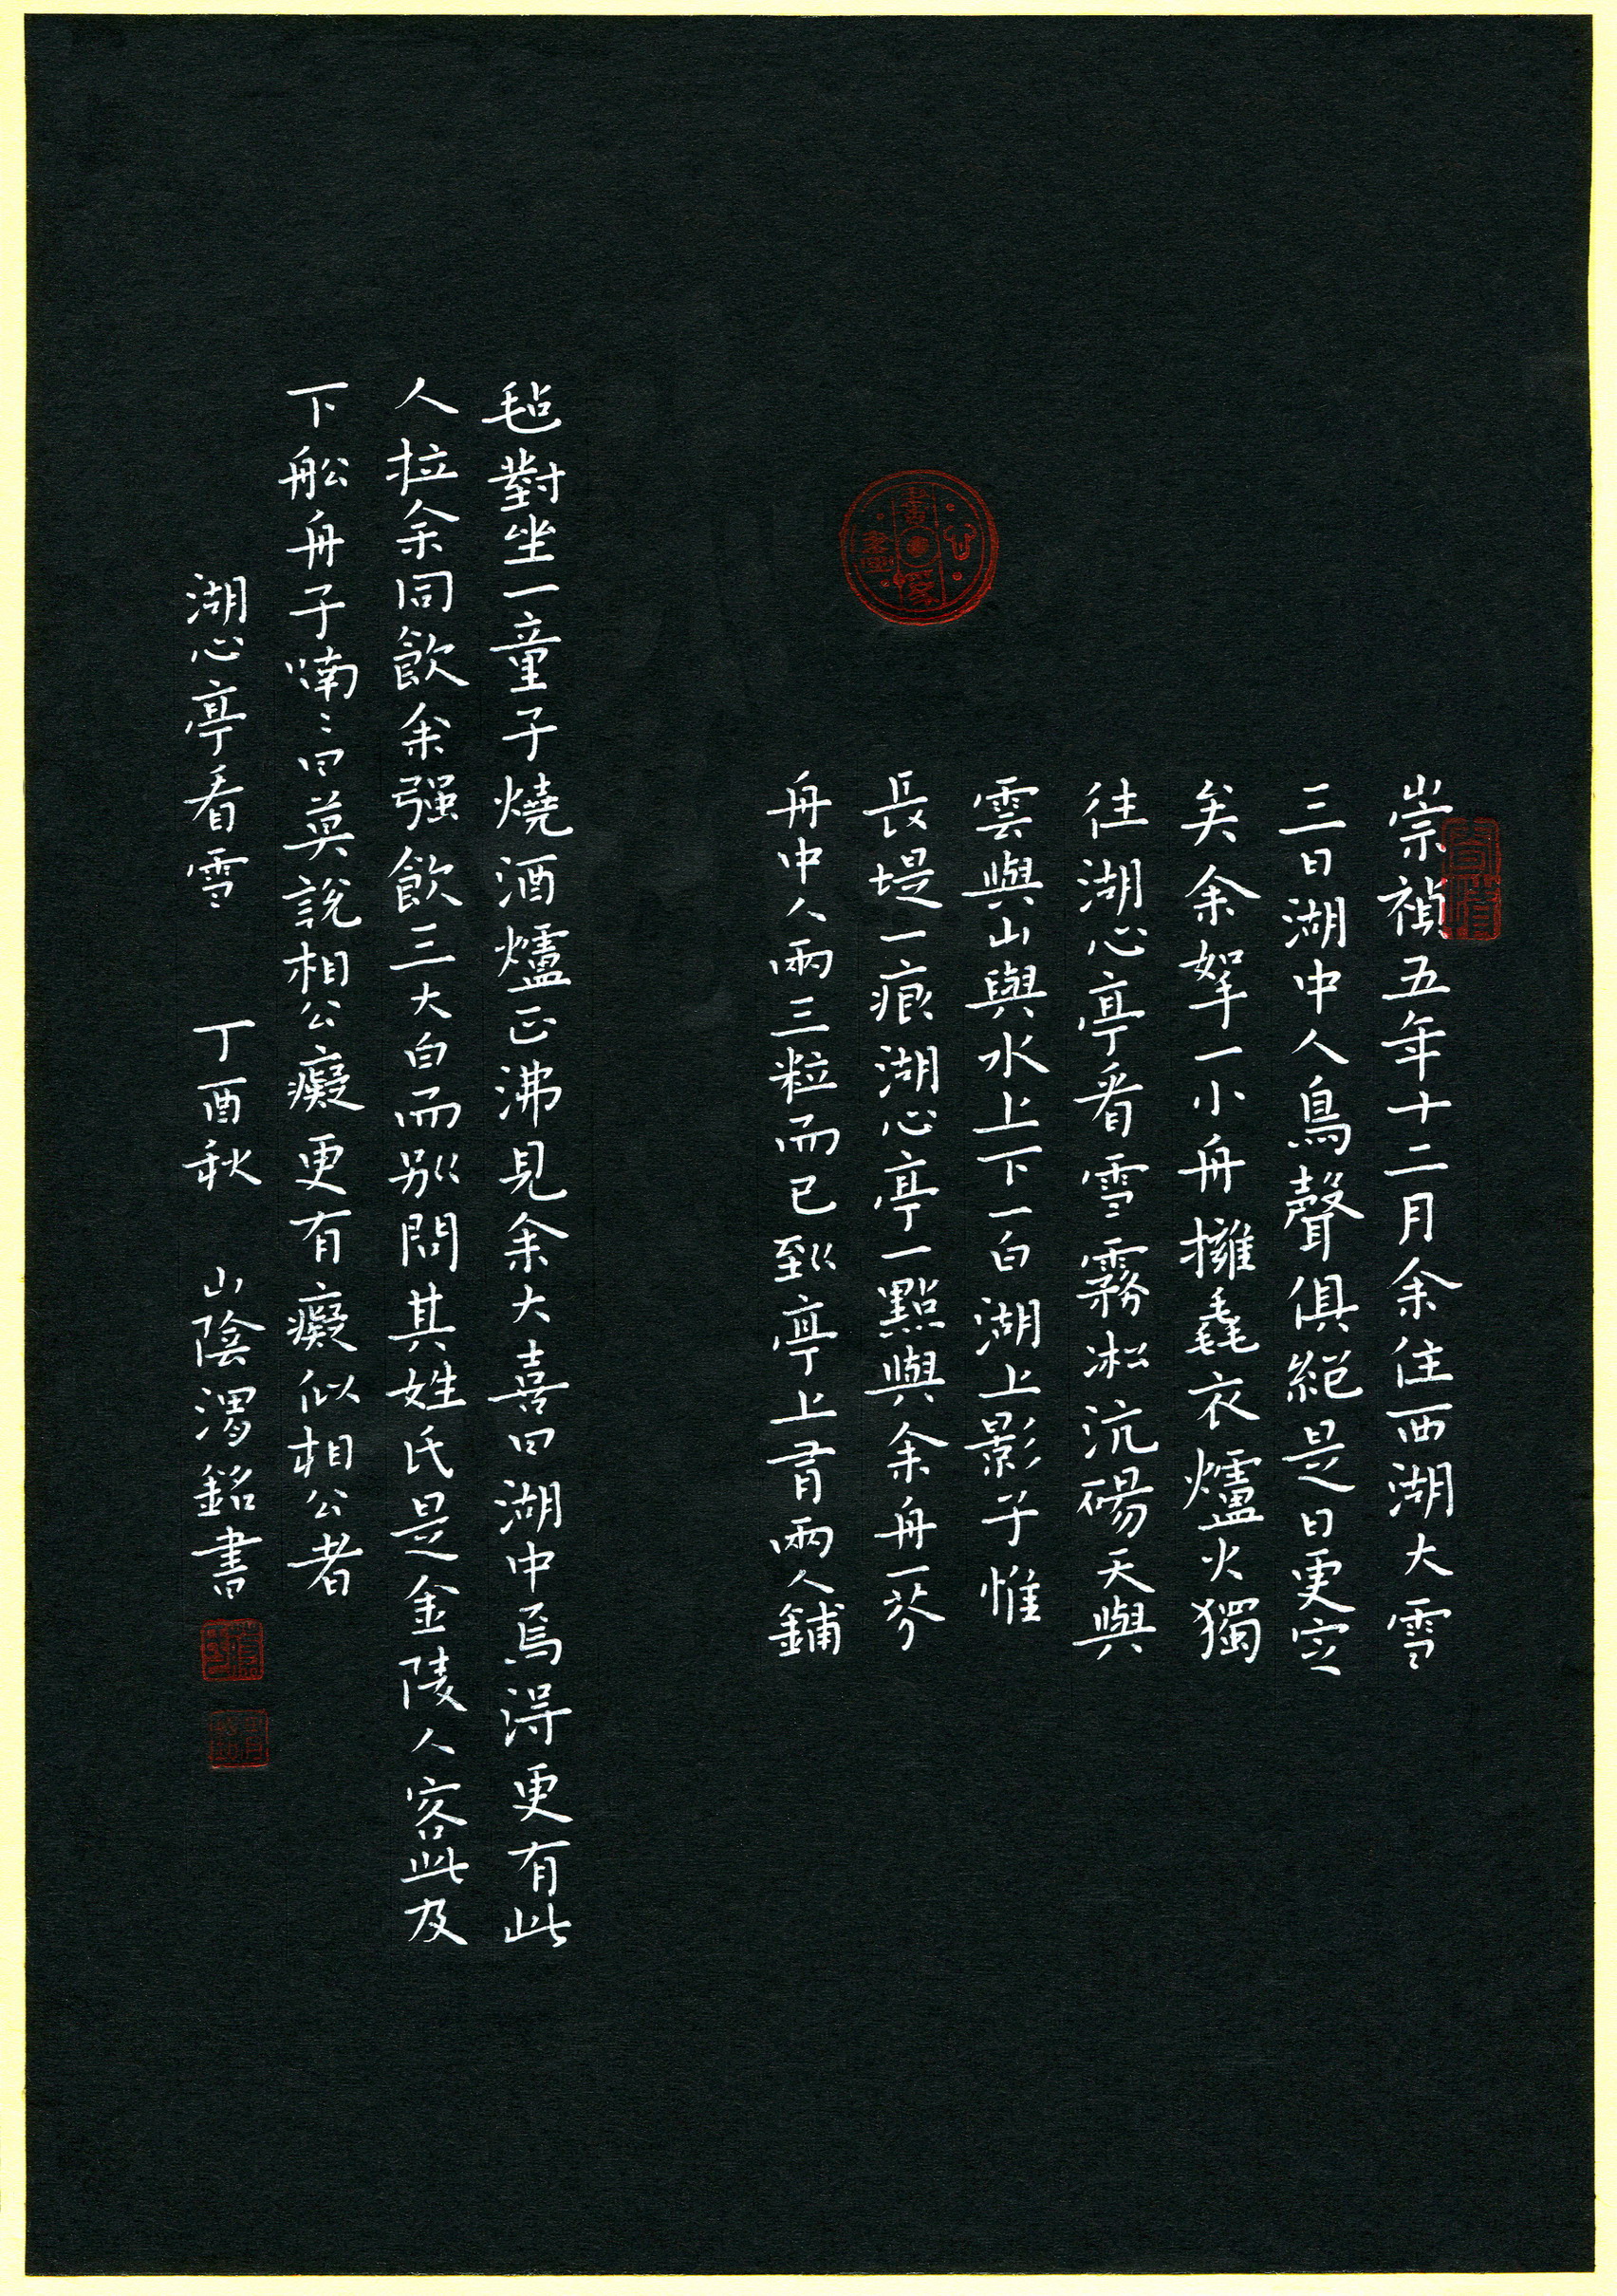 崇禎五年十二月余住西湖大雪
三日湖中人鳥聲俱絕是日更定
矣余拏一小舟擁毳衣爐火獨
往湖心亭看雪霧凇沆碭天與
雲與山與水上下一白湖上影子惟
長堤一痕湖心亭一點與余舟一芥
舟中人兩三粒而已到亭上有兩人鋪
氈對坐一童子燒酒爐正沸見余大喜曰湖中焉得更有此
人拉余同飲余强飲三大白而別問其姓氏是金陵人客此及
下舩舟子喃〻曰莫說相公癡更有癡似相公者
湖心亭看雪 丁酉秋 山陰渭銘書